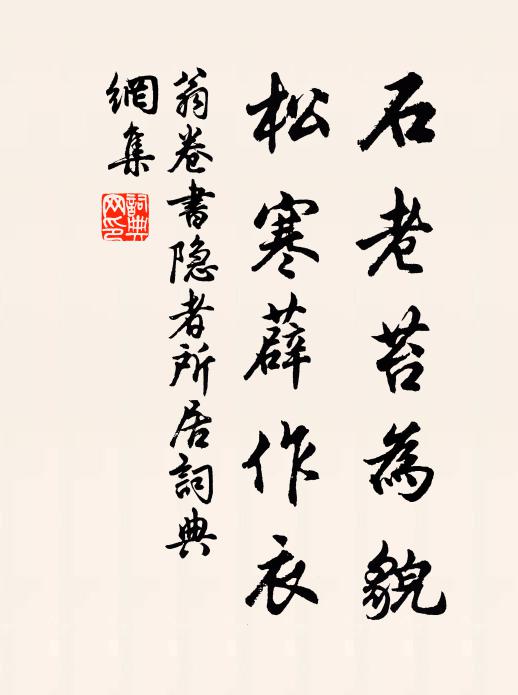 石老苔為貌
松寒薜作衣
翁卷書隐者所居詞典
網集
詞典网印